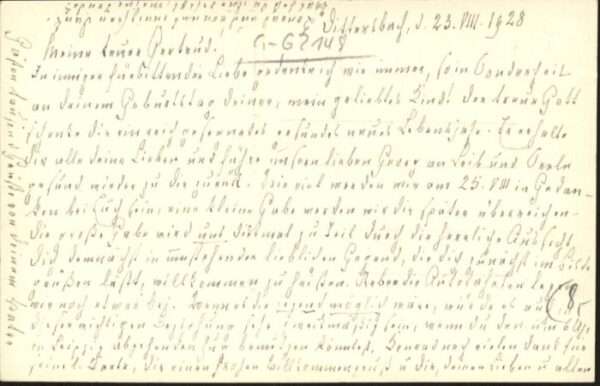 Dittersbach, d. 23.VIII.1928
Meine teure Gertrud!
G-GZ 148
In inniger fürbittender Liebe gedenken wir immer, so in Sonderheit
an deinem Geburtstag deiner, mein geliebtes Kind! Der treue Gott
schenke dir ein reich gesegnetes gesundes neues Lebensjahr. Er erhalte
dir alle deine Lieben und führe unsern lieben Georg an Leib und Seele
gesund wieder zu dir zurück. Wie viel werden wir am 25.VIII in Gedan-
ken bei Euch sein, eine kleine Gabe werden wir dir später überreichen.
Die große Gabe wird uns diesmal zu Teil durch die herrliche Aussicht,
Dich demnächst in umstehender lieblichen Gegend, die dich zunächst im Bilde
grüßen läßt, willkommen zu heißen. Ueber die Autofahrten
wir noch etwas bei. Wenn es dir irgend möglich wäre, würde es
8
dieser wichtigen sehr zweckmäßig sein, wenn du den um 6
in Leipzig abgehenden benutzen könntest. noch vielen Dank für
seine l. Karte, die einen frohen u dir, deinen Lieben u allen
von deinem Vater